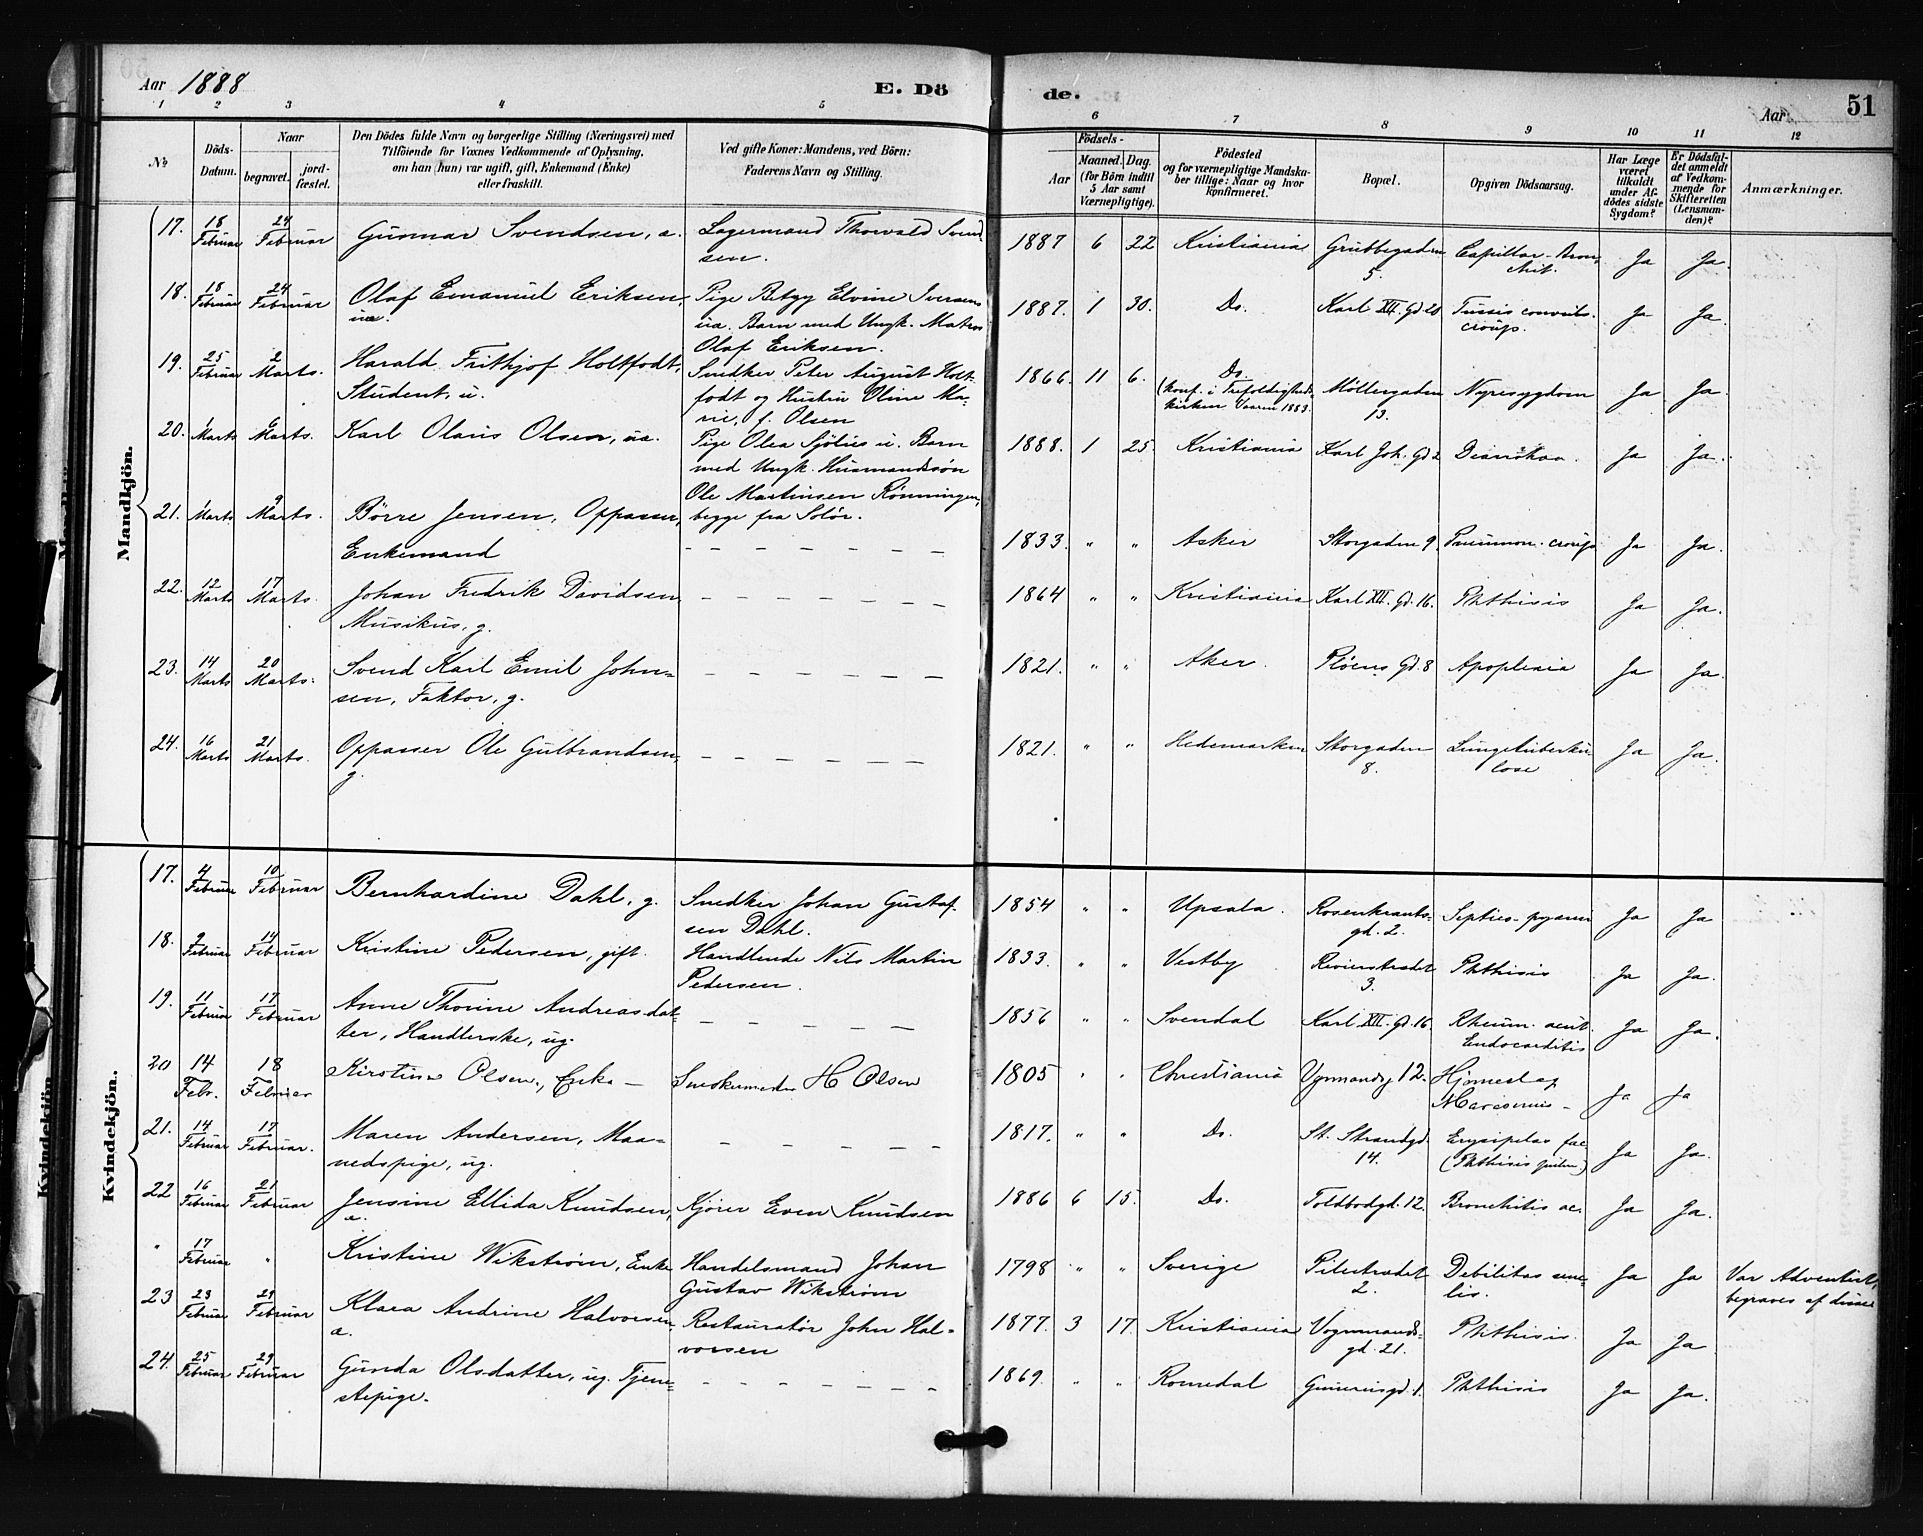 Aar 1888
E. Dö
de.
Aar
51
1 2 3 4 5
6 7 8 9 10 11 12
No
Döds-
Datum.
Naar
begravet.
jord-
fæstet.
Den Dödes fulde Navn og borgerlige Stilling (Næringsvei) med
Tilföiende for Voxnes Vedkommende af Oplysning,
om han (hun) var ugift, gift, Enkemand (Enke)
eller fraskilt.
Ved gifte Koner: Mandens, ved Börn:
Faderens Navn og Stilling.
Födsels-
Aar
Maaned. Dag.
(for Börn indtil
5 Aar samt
Værnepligtige).
Födested
og for værnepligtige Mandska-
ber tillige: Naar og hvor
konfirmeret.
Bopæl.
Opgiven Dödsaarsag.
Har Læge
været
tilkaldt
under Af-
dödes sidste
Sygdom?
Er Dödsfal-
det anmeldt
af Vedkom-
mende for
Skifteretten
(Lensman-
den)?
Anmærkninger.
Mandkjön.
17. 18 Februar 24 Februar Gunnar Svendsen, a. Lagermand Thorvald Svend- 1887 6 22 Kristiania Grubbegaden Capillar-Bron- Ja Ja.
sen. 5. chit.
18. 18 Februar 24 Februar Olaf Emanuel Eriksen, Pige Betzy Elvine Iversen 1887. 1 30. Do. Karl XII. Gd 20 Tussis convuls. Ja Ja.
ua. ua. Barn med Ungk. Matros croup.
Olaf Eriksen.
19. 25 Februar 2 Marts. Harald Frithjof Holtfodt, Snedker Peter August Holt- 1866. 11 6. Do. Möllergaden Nyresygdom Ja Ja.
Student, u. fodt og Hustru Oline Ma- (konf. i Trefoldigheds- 13.
rie, f. Olsen kirken Vaaren 1883.
20. Marts Marts. Karl Olaus Olsen, ua. Pige Olea Sjölies u. Barn 1888. 1 25. Kristiania Karl Joh. Gd 2 Diarrhoa. Ja Ja.
med Ungk. Husmandssön
Ole Martinsen Rønningen,
21. Marts 9 Marts. Börre Jensen, Oppasser, begge fra Solör.
Enkemand 1833. " " Asker Storgaden 9. Pneumon. croup. Ja Ja.
22. 12 Marts 17 Marts. Johan Fredrik Davidsen, 1864 " " Kristiania Karl XII. Gd. 16. Phthisis Ja Ja.
Musikus, g.
23. 14 Marts 20 Marts. Svend Karl Emil John- 1821. " " Aker. Plöens Gd. 8 Apoplexia Ja Ja.
sen, Faktor, g.
24. 16 Marts 21 Marts. Oppasser Ole Gulbrandsen, 1821. " " Hedemarken Storgaden Lungetuberku- Ja Ja.
g. 8. lose
Kvindekjön.
17. 4 Februar 10 Februar Bernhardine Dahl, g. Snedker Johan Gustaf- 1854 " " Upsala. Rosenkrants- Septico-pyæmi Ja Ja
sen Dahl. gd. 2.
18. 9 Februar 14 Februar Kristine Pedersen, gift. Handlende Nils Martin 1833. " " Vestby Revierstrædet Phthisis Ja Ja.
Pedersen. 3.
19. 11 Februar 17 Februar Anne Thorine Andreasdat- 1856 " " Svendal Karl XII. Gd. 16. Rheum. acut. Ja Ja.
ter, Handlerske, ug. Endocarditis
20 14 Febr. 18 Februar Kirstine Olsen, Enke – Snedkermester H Olsen 1805 " " Christiania Vognmandsg 12. Hjerneslag
Marasmus – Ja Ja
21. 14 Februar 17 Februar. Maren Andersen, Maa- 1817. " " Do. St. Strandgd. Erysipelas fac
nedspige, ug. 14. (Phthisis pulm) Ja Ja.
22 16 Februar 21 Februar Jensine Ellida Knudsen, Kjörer Even Knudsen 1886 6 15. Do. Toldbodgd. 12. Bronchitis ac. Ja Ja.
a.
" 17 Februar " Kristine Wikström, Enke Handelsmand Johan 1798 " " Sverige Pilestrædet Debilitas seni- Ja Ja Var Adventist,
Gustav Wikström 2. lis. begraves af disse
23 23 Februar 28 Februar Klara Andrine Halvorsen, Restauratör John Hal- 1877. 3 17. Kristiania Vognmands- Phthisis. Ja Ja
a. vorsen gd. 21.
24. 25 Februar 29 Februar Gunda Olsdatter, ug. Tjene- 1869. " " Romedal Gunerusgd. 1. Phthisis Ja Ja.
stepige.